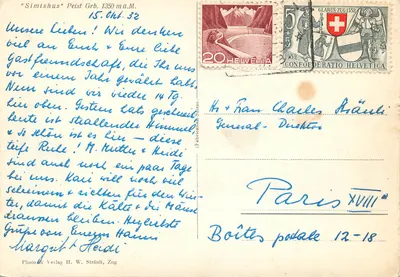 "Simishus" Peist Grb. 1350 m ü. M.
15. Okt. 52
Unsere Lieben! Wir denken
viel an Euch & Eure liebe
Gastfreundschaft, die Ihr uns
vor einem Jahr gewährt habt.
Nun sind wir wieder 14 Tg.
hier oben. Gestern hats geschneit,
heute ist strahlender Himmel,
& so schön ist es hier – diese
tiefe Ruhe! M. Mutter & Heidi
sind auch noch ein paar Tage
bei uns. Kari will noch viel
schreinern & richten für den Win-
ter, damit die Kälte & die Mäuse
draussen bleiben. Herzlichste
Grüsse von Eurem Hanns
Margrit & Heidi
Photo & Verlag H. W. Strässli, Zug
20 HELVETIA
5
GLARUS
CONFOEDERATIO HELVETICA
Hr & Frau Charles
General-Direktor
Paris XVIIIe
Boîtes postale 12-18